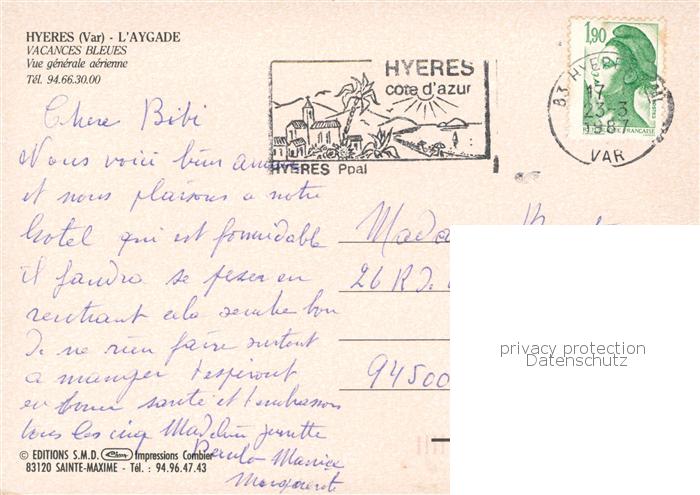 HYERES (Var) - L'AYGADE
VACANCES BLEUES
Vue générale aérienne
Tél. 94.66.30.00
HYERES
cote d'azur
HYERES Ppal
1,90
83 HYERES
17 H
23-3
1987
VAR
Chere Bibi
Nous voici bien arrivés
et nous plaisons a notre
hotel qui est formidable
il faudra se peser en
rentrant cela semble bon
de ne rien faire surtout
a manger t'espéront
en bonne santé et t'embrassons
tous les cinq Madeleine Ginette
Paulo Maurice
Marguerite
Mada
26 Rd.
94500
privacy protection
Datenschutz
© EDITIONS S.M.D. Cim Impressions Combier
83120 SAINTE-MAXIME - Tél. : 94.96.47.43